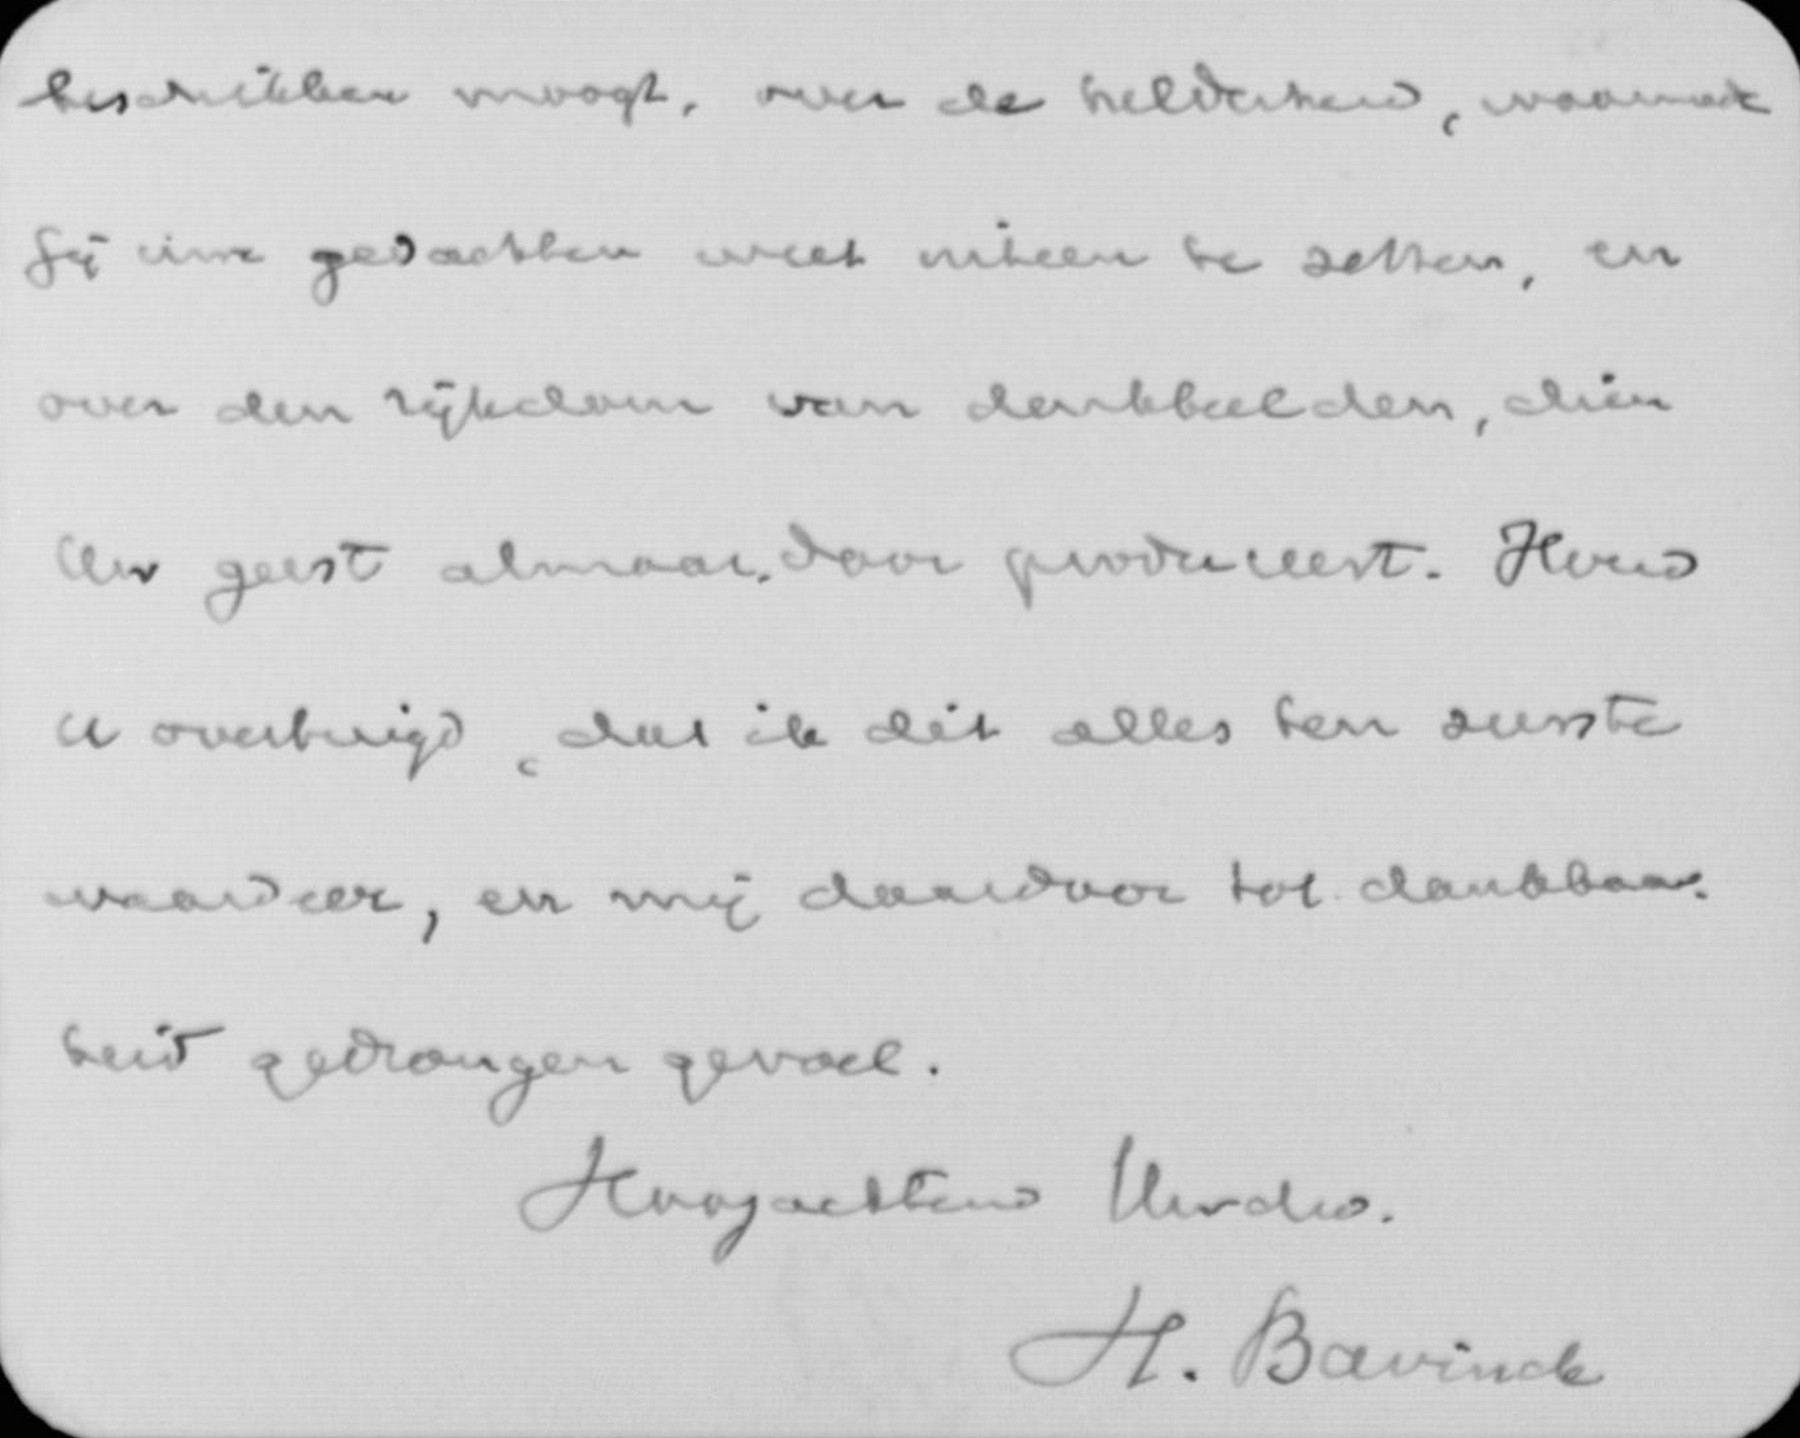 beschikken moogt, over de helderheid, waarmede
Gij uwe gedachten weet uiteen te zetten, en
over den rijkdom van denkbeelden, dien
Uw geest almaar door produceert. Houd
U overtuigd, dat ik dit alles ten zeerste
waardeer, en mij daardoor tot dankbaar-
heid gedrongen gevoel.
Hoogachtend Uwdw.
H. Bavinck